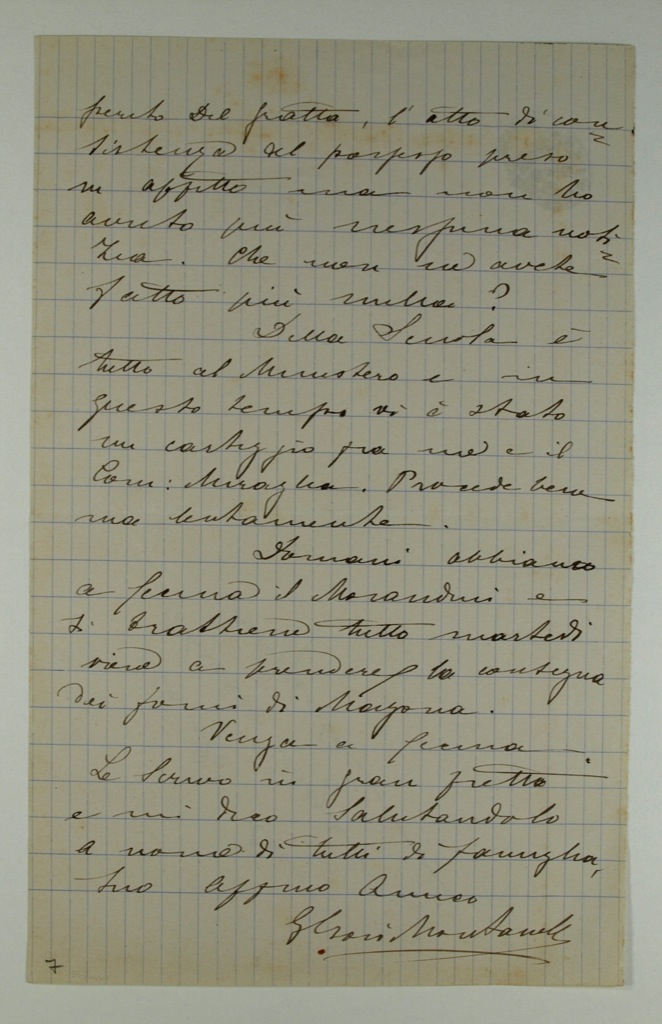 perito Del gratta, l'atto di con=
sistenza del possesso preso
in affitto ma non ho
avuto più nessuna noti=
zia. Che non ne avete
fatto più nulla?
Della Scuola è
tutto al Ministero e in
questo tempo vi è stato
un carteggio fra me e il
Com: Miraglia. Procede bene
ma lentamente.
Domani abbiamo
a Cecina il Morandini e
si trattiene tutto martedì
viene a prendere la consegna
dei forni di Magona.
Venga a Cecina.
Le Scrivo in gran fretta
e mi dico Salutandolo
a nome di tutti di famiglia,
Suo Affmo Amico
Montanelli
7